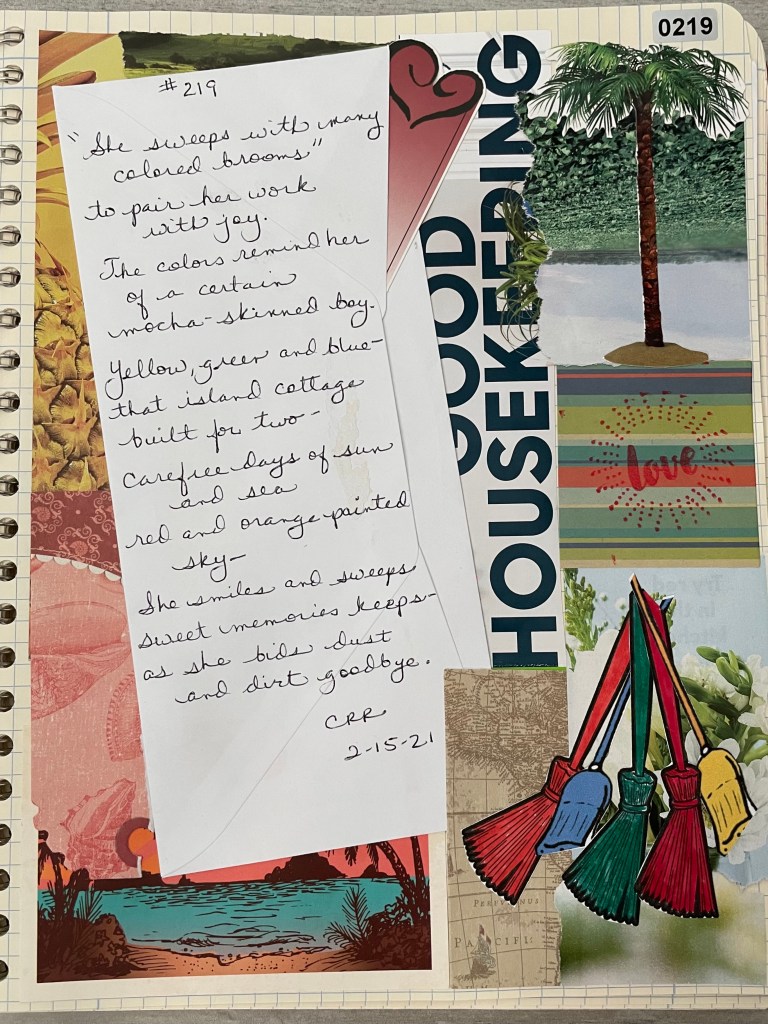 0219
#219
"She sweeps with many
colored brooms"
to pair her work
with joy.
The colors remind her
of a certain
mocha-skinned boy.
Yellow, green and blue-
that island cottage
built for two-
Carefree days of sun
and sea
red and orange painted
sky-
She smiles and sweeps
sweet memories keeps-
as she bids dust
and dirt goodbye.
CRR
2-15-21
GOOD
HOUSEKEEPING
love
Try red
in th
PACIFI